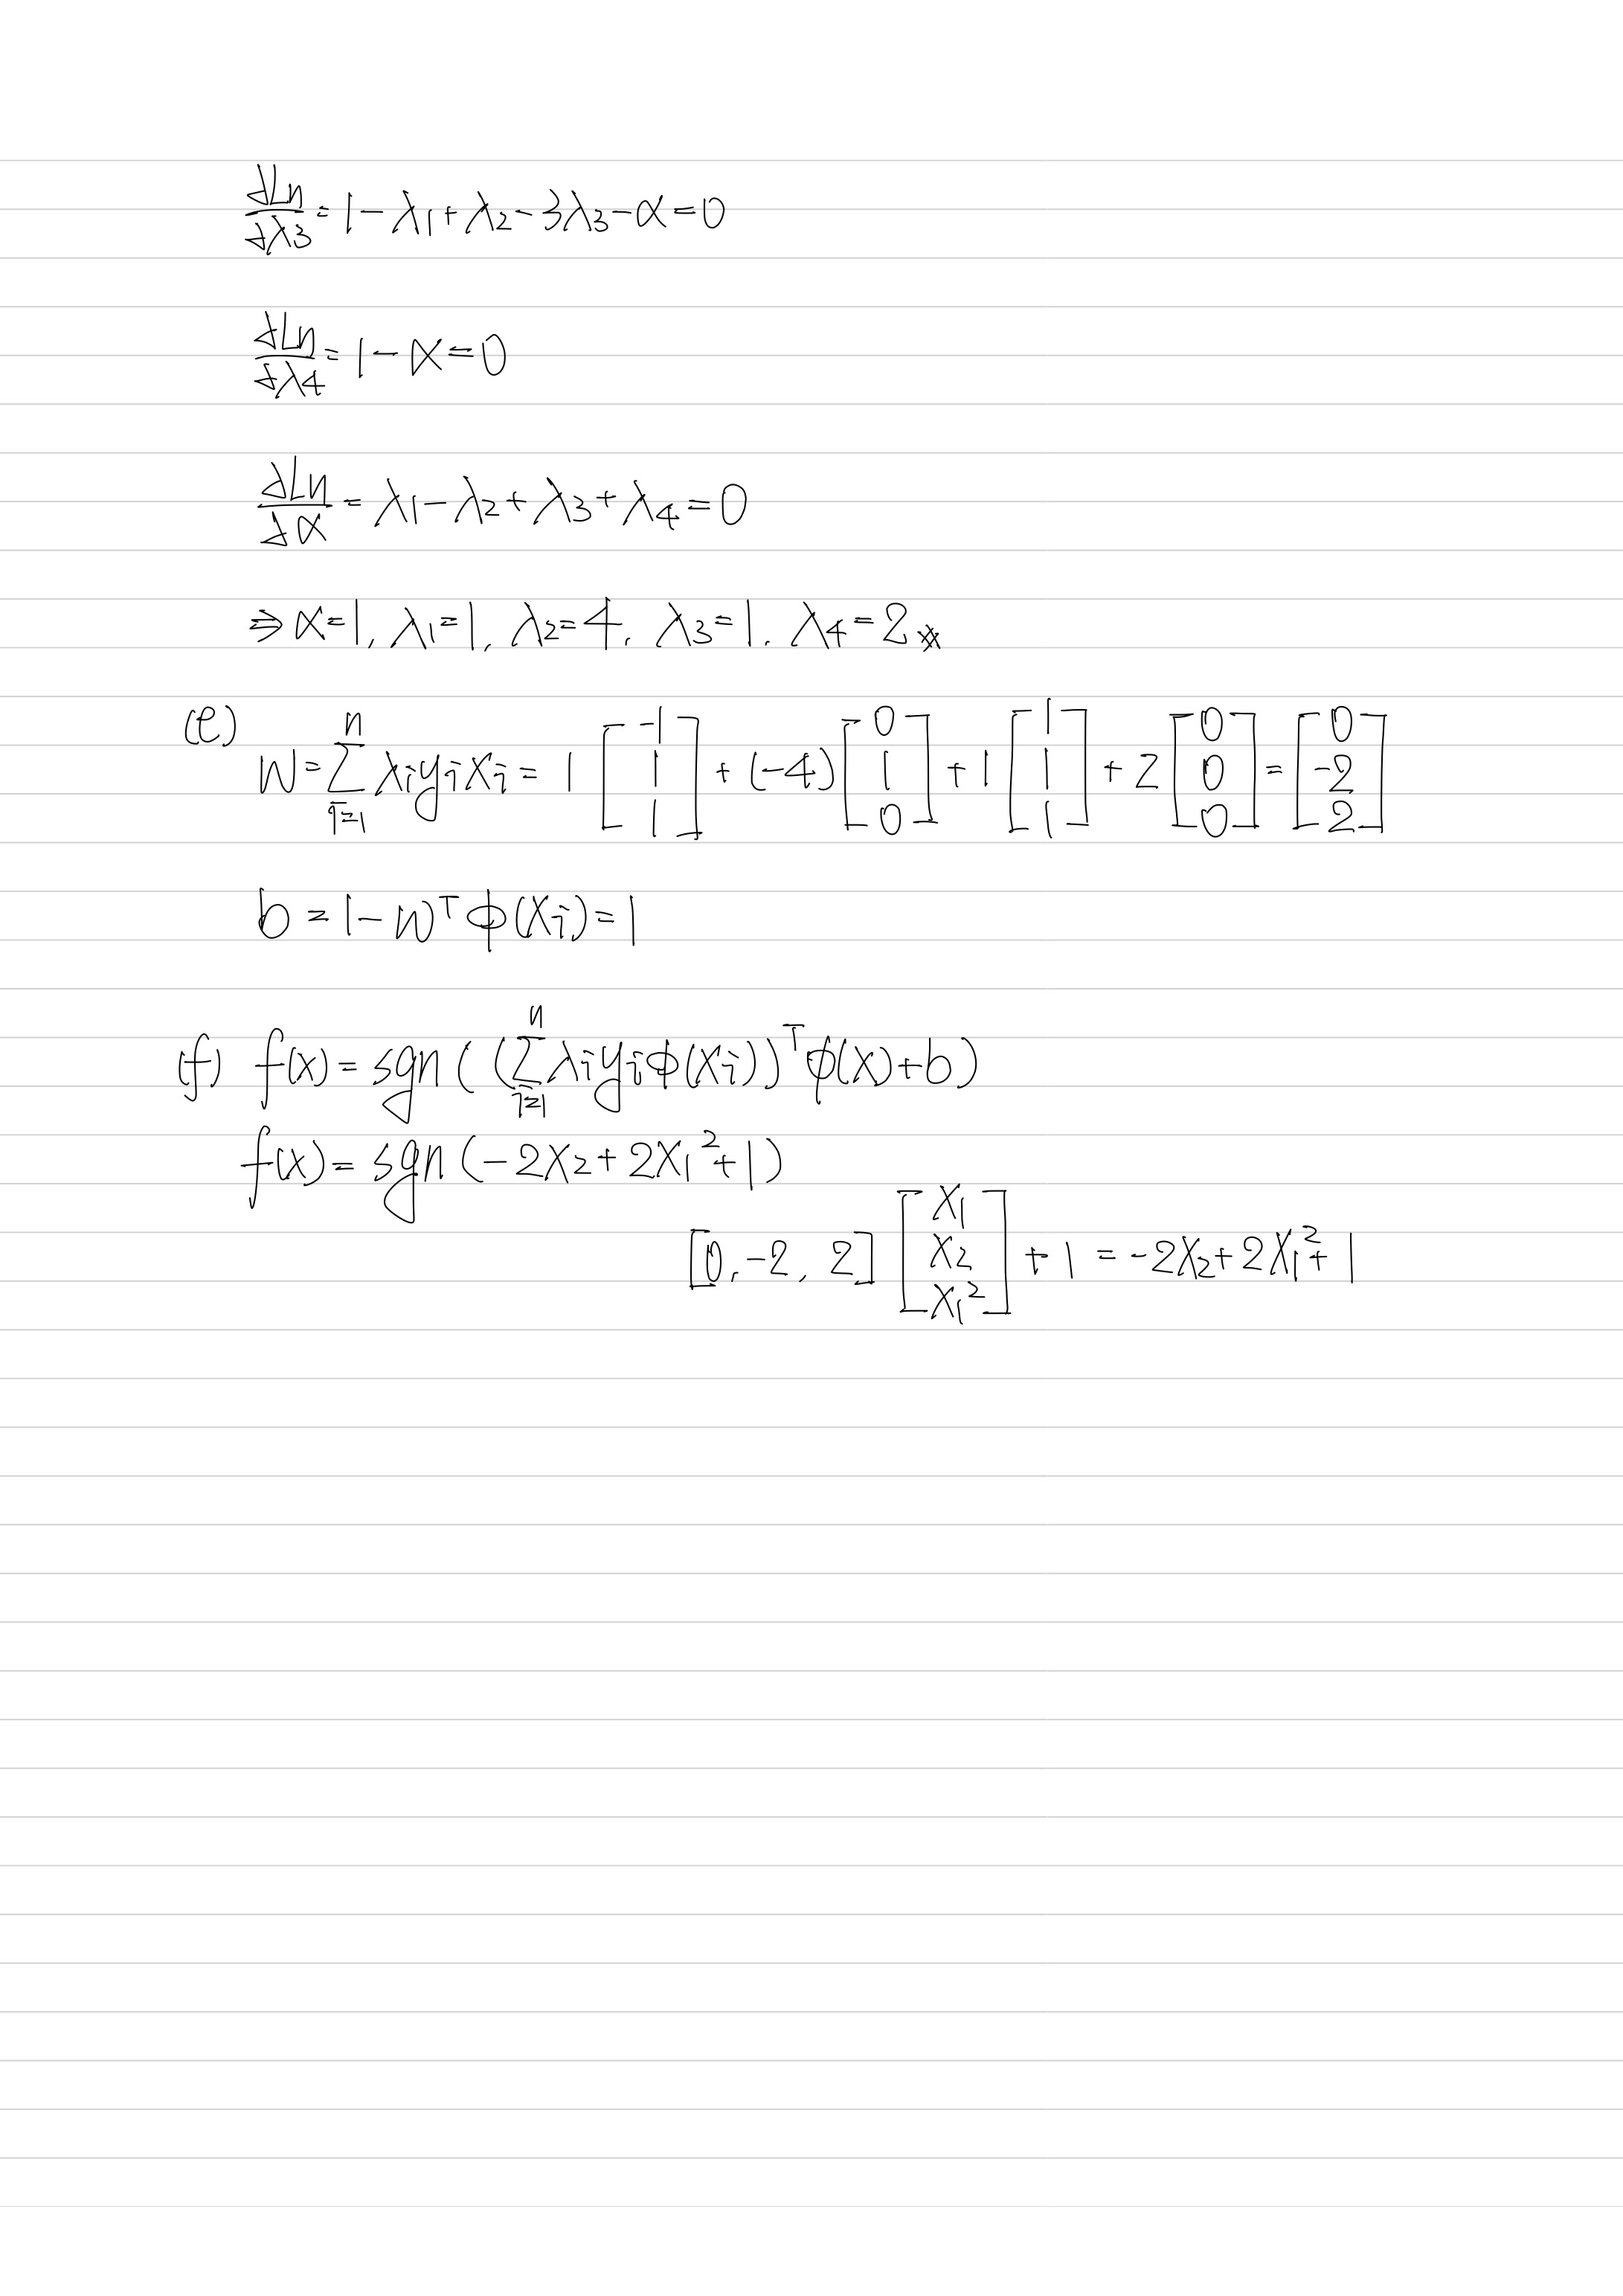 dLn/dλ3 = 1 - λ1 + λ2 - 3λ3 - α = 0
dLn/dλ4 = 1 - α = 0
dLn/dα = λ1 - λ2 + λ3 + λ4 = 0
⇒ α=1, λ1=1, λ2=4, λ3=1, λ4=2 ※
(e) W = Σ_{i=1}^{n} λi yi xi = 1 [-1 1 1] + (-4) [0 1 0] + 1 [1 1 1] + 2 [0 0 0] = [0 -2 2]
b = 1 - W^T φ(Xi) = 1
(f) f(x) = sgn ( (Σ_{i=1}^{n} λi yi φ(Xi))^T φ(X) + b )
f(x) = sgn (-2X2 + 2X1² + 1)
[0, -2, 2] [X1 X2 X1²] + 1 = -2X2 + 2X1² + 1